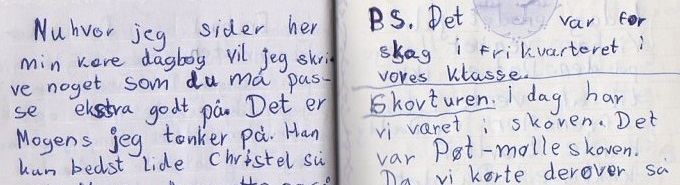 Nu hvor jeg sider her
min kære dagbog vil jeg skri-
ve noget som du må pas-
se ekstra godt på. Det er
Mogens jeg tænker på. Han
kan bedst lide Christel så
BS. Det var for
skæg i frikvarteret i
vores klasse.
Skovturen. I dag har
vi været i skoven. Det
var Pøt-mølleskoven.
Da vi kørte derover så